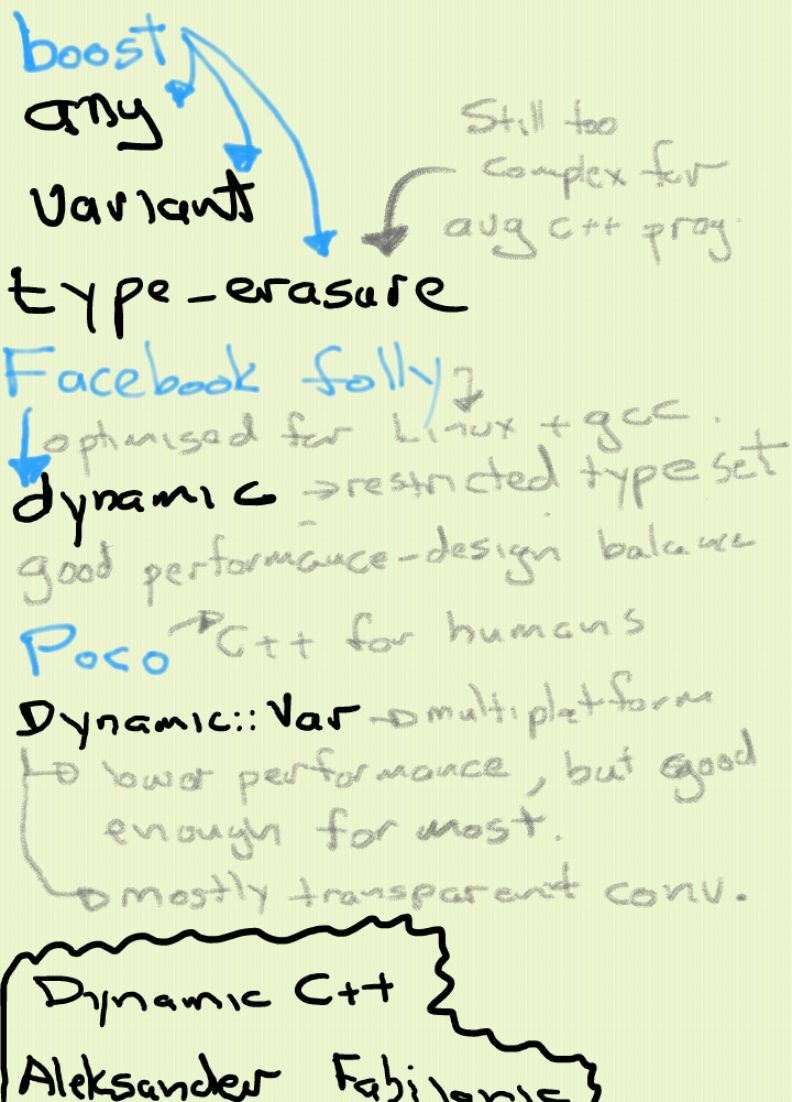 boost
any
variant
Still too
complex for
avg C++ prog.
type_erasure
Facebook folly
optimised for Linux + gcc.
dynamic → restricted type set
good performance-design balance
Poco → C++ for humans
Dynamic::Var → multiplatform
→ lower performance, but good
enough for most.
→ mostly transparent conv.
Dynamic C++
Aleksander